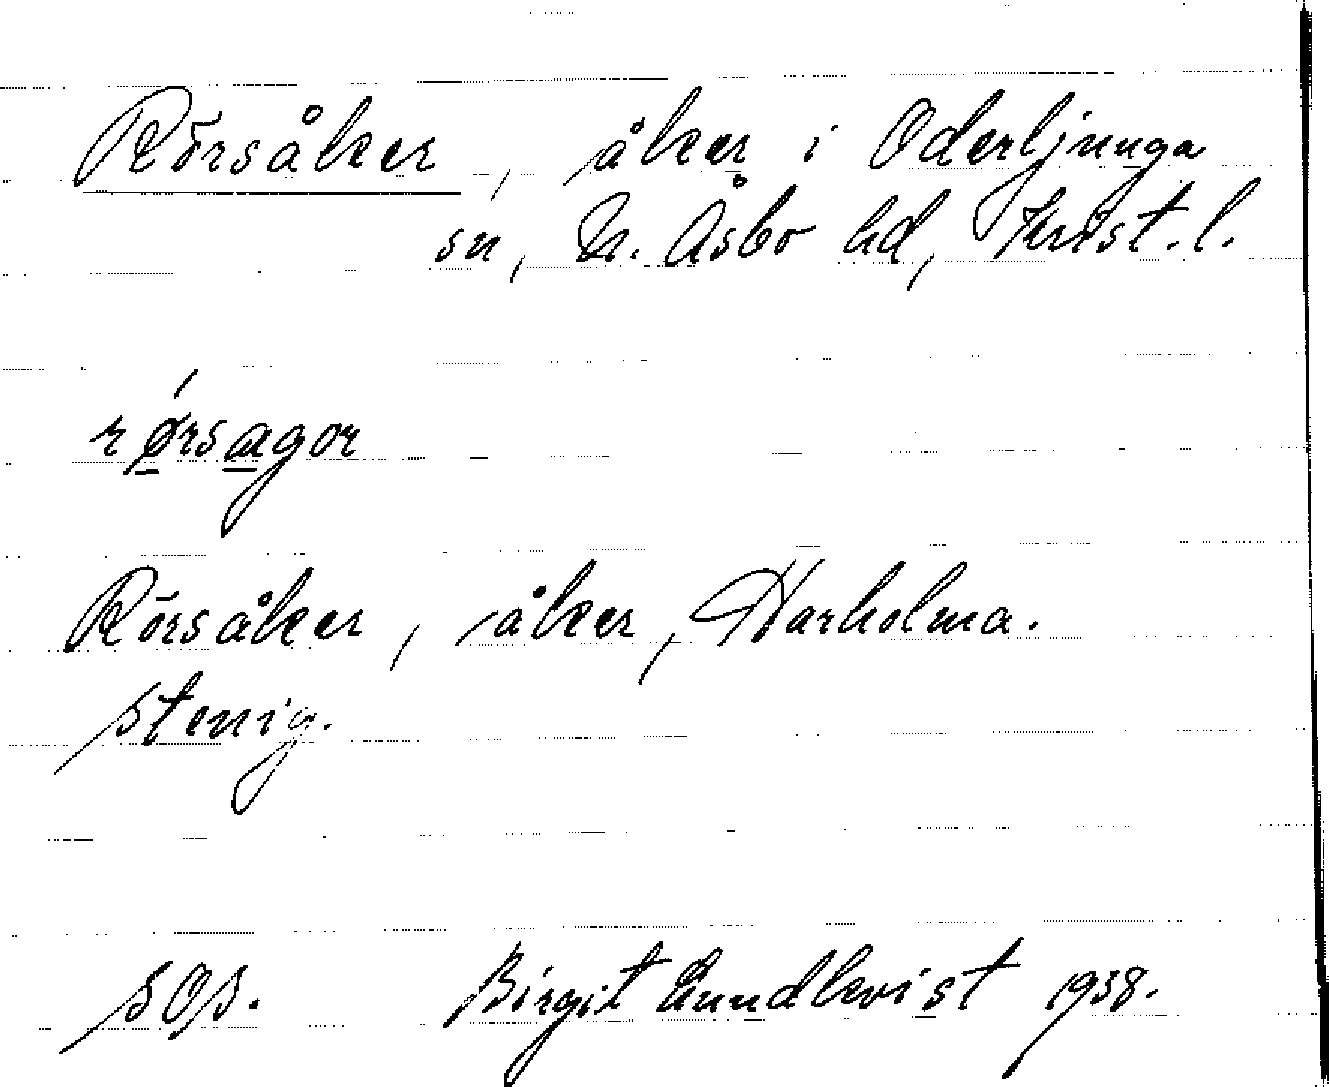 Rörsåker, åker i Oderljunga
sn, N. Åsbo hd, Krist. l.
rø̱rsa̱gor
Rörsåker, åker, Harholma.
stenig.
SOS. Birgit Lundkvist 1938.